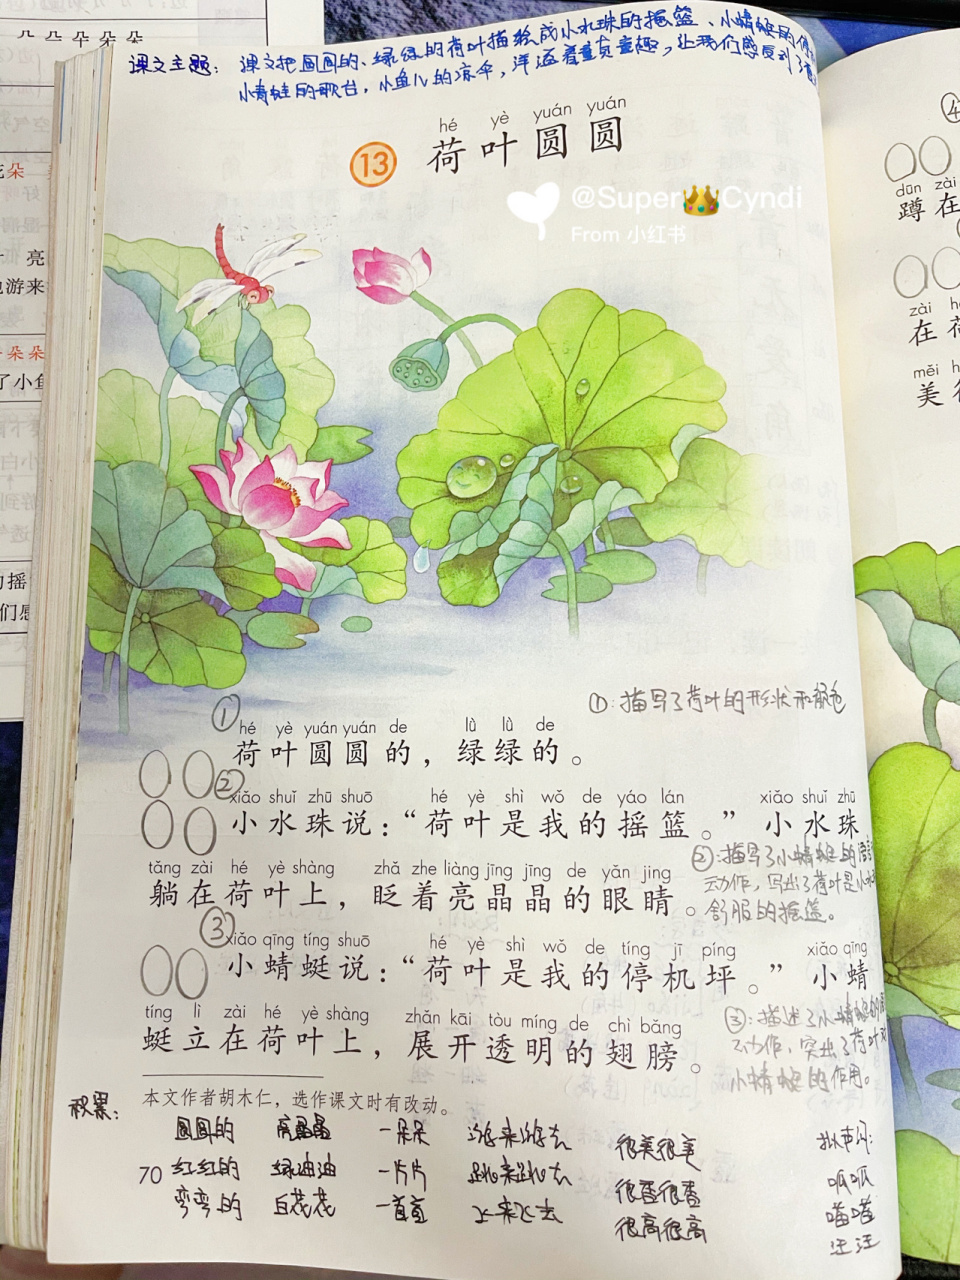 课文主题：课文把圆圆的、绿绿的荷叶描绘成小水珠的摇篮、小蜻蜓的停
小青蛙的歌台，小鱼儿的凉伞，洋溢着童真童趣，让我们感受到了
hé yè yuán yuán
13 荷叶圆圆
@Super👑Cyndi
From 小红书
①：描写了荷叶的形状和颜色
①
hé yè yuán yuán de lǜ lǜ de
荷叶圆圆的，绿绿的。
②
xiǎo shuǐ zhū shuō hé yè shì wǒ de yáo lán xiǎo shuǐ zhū
小水珠说：“荷叶是我的摇篮。”小水珠
②：描写了小蜻蜓的语言
动作，写出了荷叶是小水
舒服的摇篮。
tǎng zài hé yè shàng zhǎ zhe liàng jīng jīng de yǎn jing
躺在荷叶上，眨着亮晶晶的眼睛。
③
xiǎo qīng tíng shuō hé yè shì wǒ de tíng jī píng xiǎo qīng
小蜻蜓说：“荷叶是我的停机坪。”小蜻
tíng lì zài hé yè shàng zhǎn kāi tòu míng de chì bǎng
蜓立在荷叶上，展开透明的翅膀。
③：描述了小蜻蜓的
动作，突出了荷叶对
小蜻蜓的作用。
本文作者胡木仁，选作课文时有改动。
积累：
圆圆的 亮晶晶 一朵朵 游来游去 很美很美 拟声词：
红红的 绿油油 一片片 跳来跳去 很香很香 呱呱
弯弯的 白花花 一首首 飞来飞去 很高很高 喵喵
汪汪
70
朵朵朵朵
亮
地游来
朵朵
了小鱼
摇
们感
④
dūn zài
蹲在
zài hé
在荷
měi
美